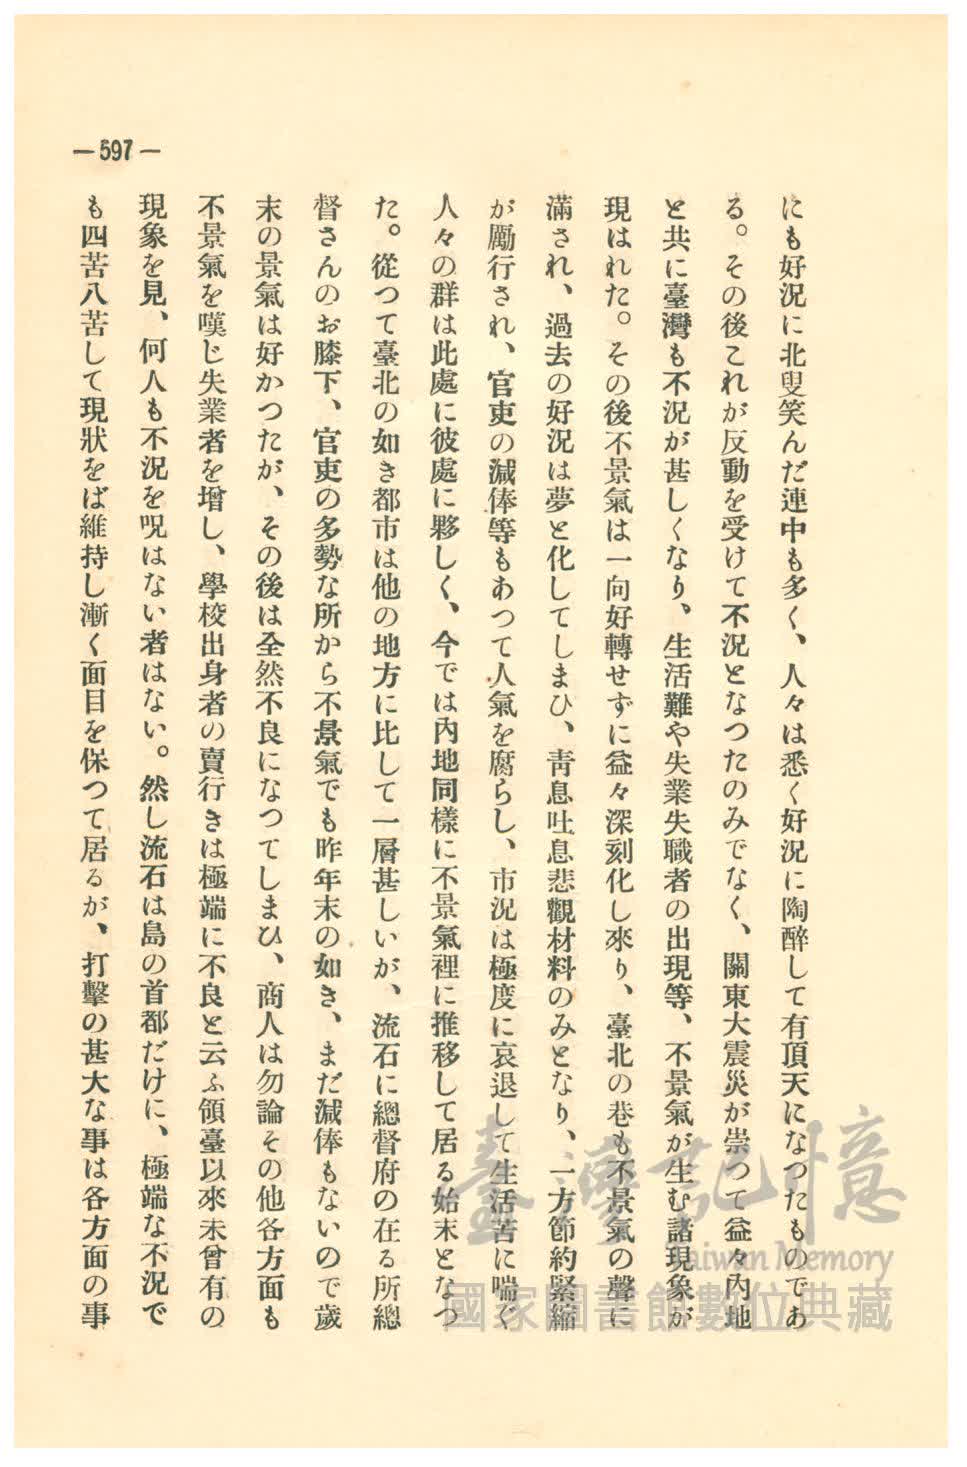 —597—
にも好況に北叟笑んだ連中も多く、人々は悉く好況に陶醉して有頂天になつたものであ
る。その後これが反動を受けて不況となつたのみでなく、關東大震災が祟つて益々內地
と共に臺灣も不況が甚しくなり、生活難や失業失職者の出現等、不景氣が生む諸現象が
現はれた。その後不景氣は一向好轉せずに益々深刻化し來り、臺北の巷も不景氣の聲に
滿され、過去の好況は夢と化してしまひ、靑息吐息悲觀材料のみとなり、一方節約緊縮
が勵行され、官吏の減俸等もあつて人氣を腐らし、市況は極度に哀退して生活苦に喘ぐ
人々の群は此處に彼處に夥しく、今では內地同樣に不景氣裡に推移して居る始末となつ
た。從つて臺北の如き都市は他の地方に比して一層甚しいが、流石に總督府の在る所總
督さんのお膝下、官吏の多勢な所から不景氣でも昨年末の如き、まだ減俸もないので歲
末の景氣は好かつたが、その後は全然不良になつてしまひ、商人は勿論その他各方面も
不景氣を嘆じ失業者を增し、學校出身者の賣行きは極端に不良と云ふ領臺以來未曾有の
現象を見、何人も不況を呪はない者はない。然し流石は島の首都だけに、極端な不況で
も四苦八苦して現狀をば維持し漸く面目を保つて居るが、打擊の甚大な事は各方面の事
臺灣記憶
Taiwan Memory
國家圖書館數位典藏